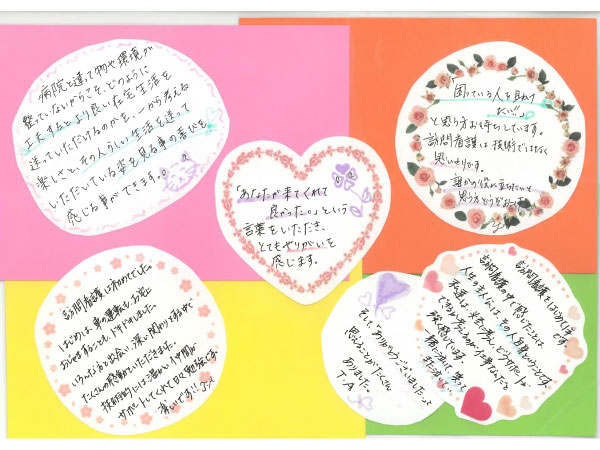 病院と違って物や環境が
整っていないからこそ、どのように
工夫するとより良い在宅生活を
送っていただけるのかを、一から考える
楽しさと、その人らしい生活を送って
いただいている姿を見る事の喜びを
感じる事ができます。
「困っている人を助け
たい!!」
と思う方お待ちしています。
訪問看護は技術ではなく
思いやりです。
誰かの役に立ちたいと
思う方どうぞ
「あなたが来てくれて
良かった。」という
言葉をいただき、
とてもやりがいを
感じます。
訪問看護は初めてでした。
はじめは、車の運転もお宅に
おじゃますることも、
いろんな方と出会い、深い関わりをする中で
たくさんの感動をいただきました。
技術的には温かい仲間が
サポートしてくれて日々勉強です
楽しいです!!
訪問看護をはじめて
訪問看護の中で感じたことは
人生の主人公は、その人自身ということです
私達は、
できる
一緒に
そして「ありがとうございました」と
思えることがたくさん
ありました。
T.A